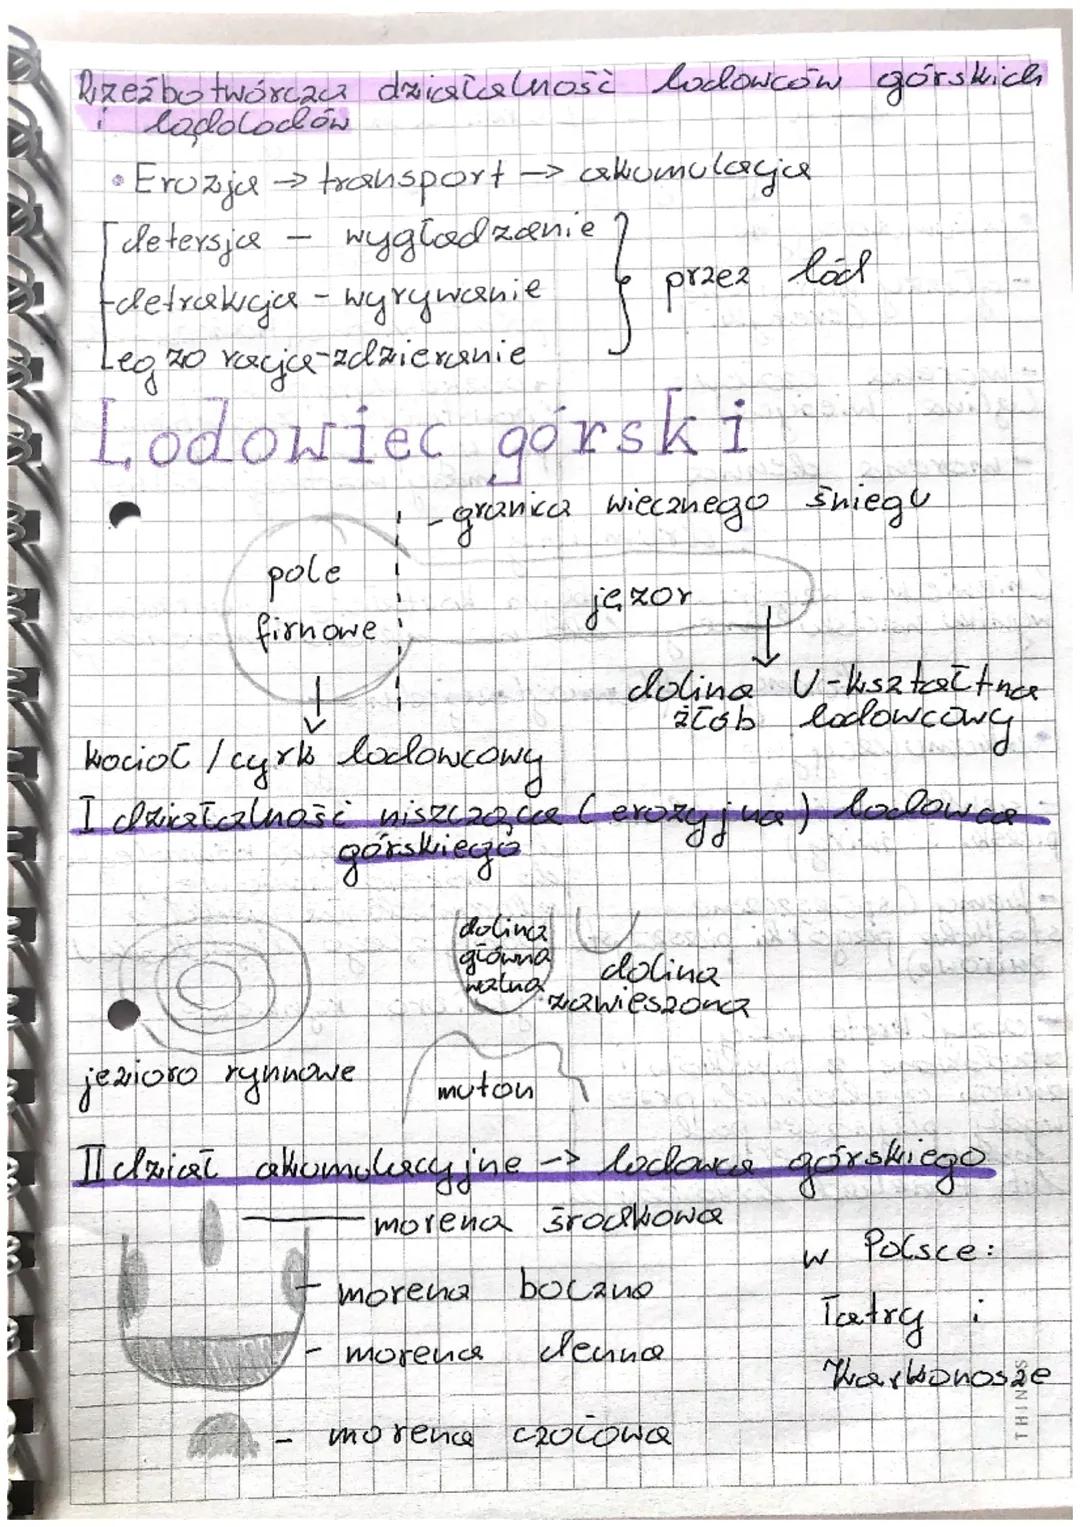 Rzeźbotwórcza działalność lodowców górskich
i lądolodów
• Erozja → transport → akumulacja
detersja - wygładzanie
detrakcja - wyrywanie
egzoracja - zdzieranie
przez lód
Lodowiec górski
- granica wiecznego śniegu
pole
firnowe
jęzor
dolina U-kształtna
żłób lodowcowy
kocioł / cyrk lodowcowy
I działalność niszcząca (erozyjna) lodowca
górskiego
dolina
główna
walna
dolina
zawieszona
jezioro rynnowe
muton
II dział akumulacyjne -> lodowca górskiego
morena środkowa
- morena boczna
- morena denna
- morena czołowa
w Polsce:
Tatry i
Karkonosze
THINGS